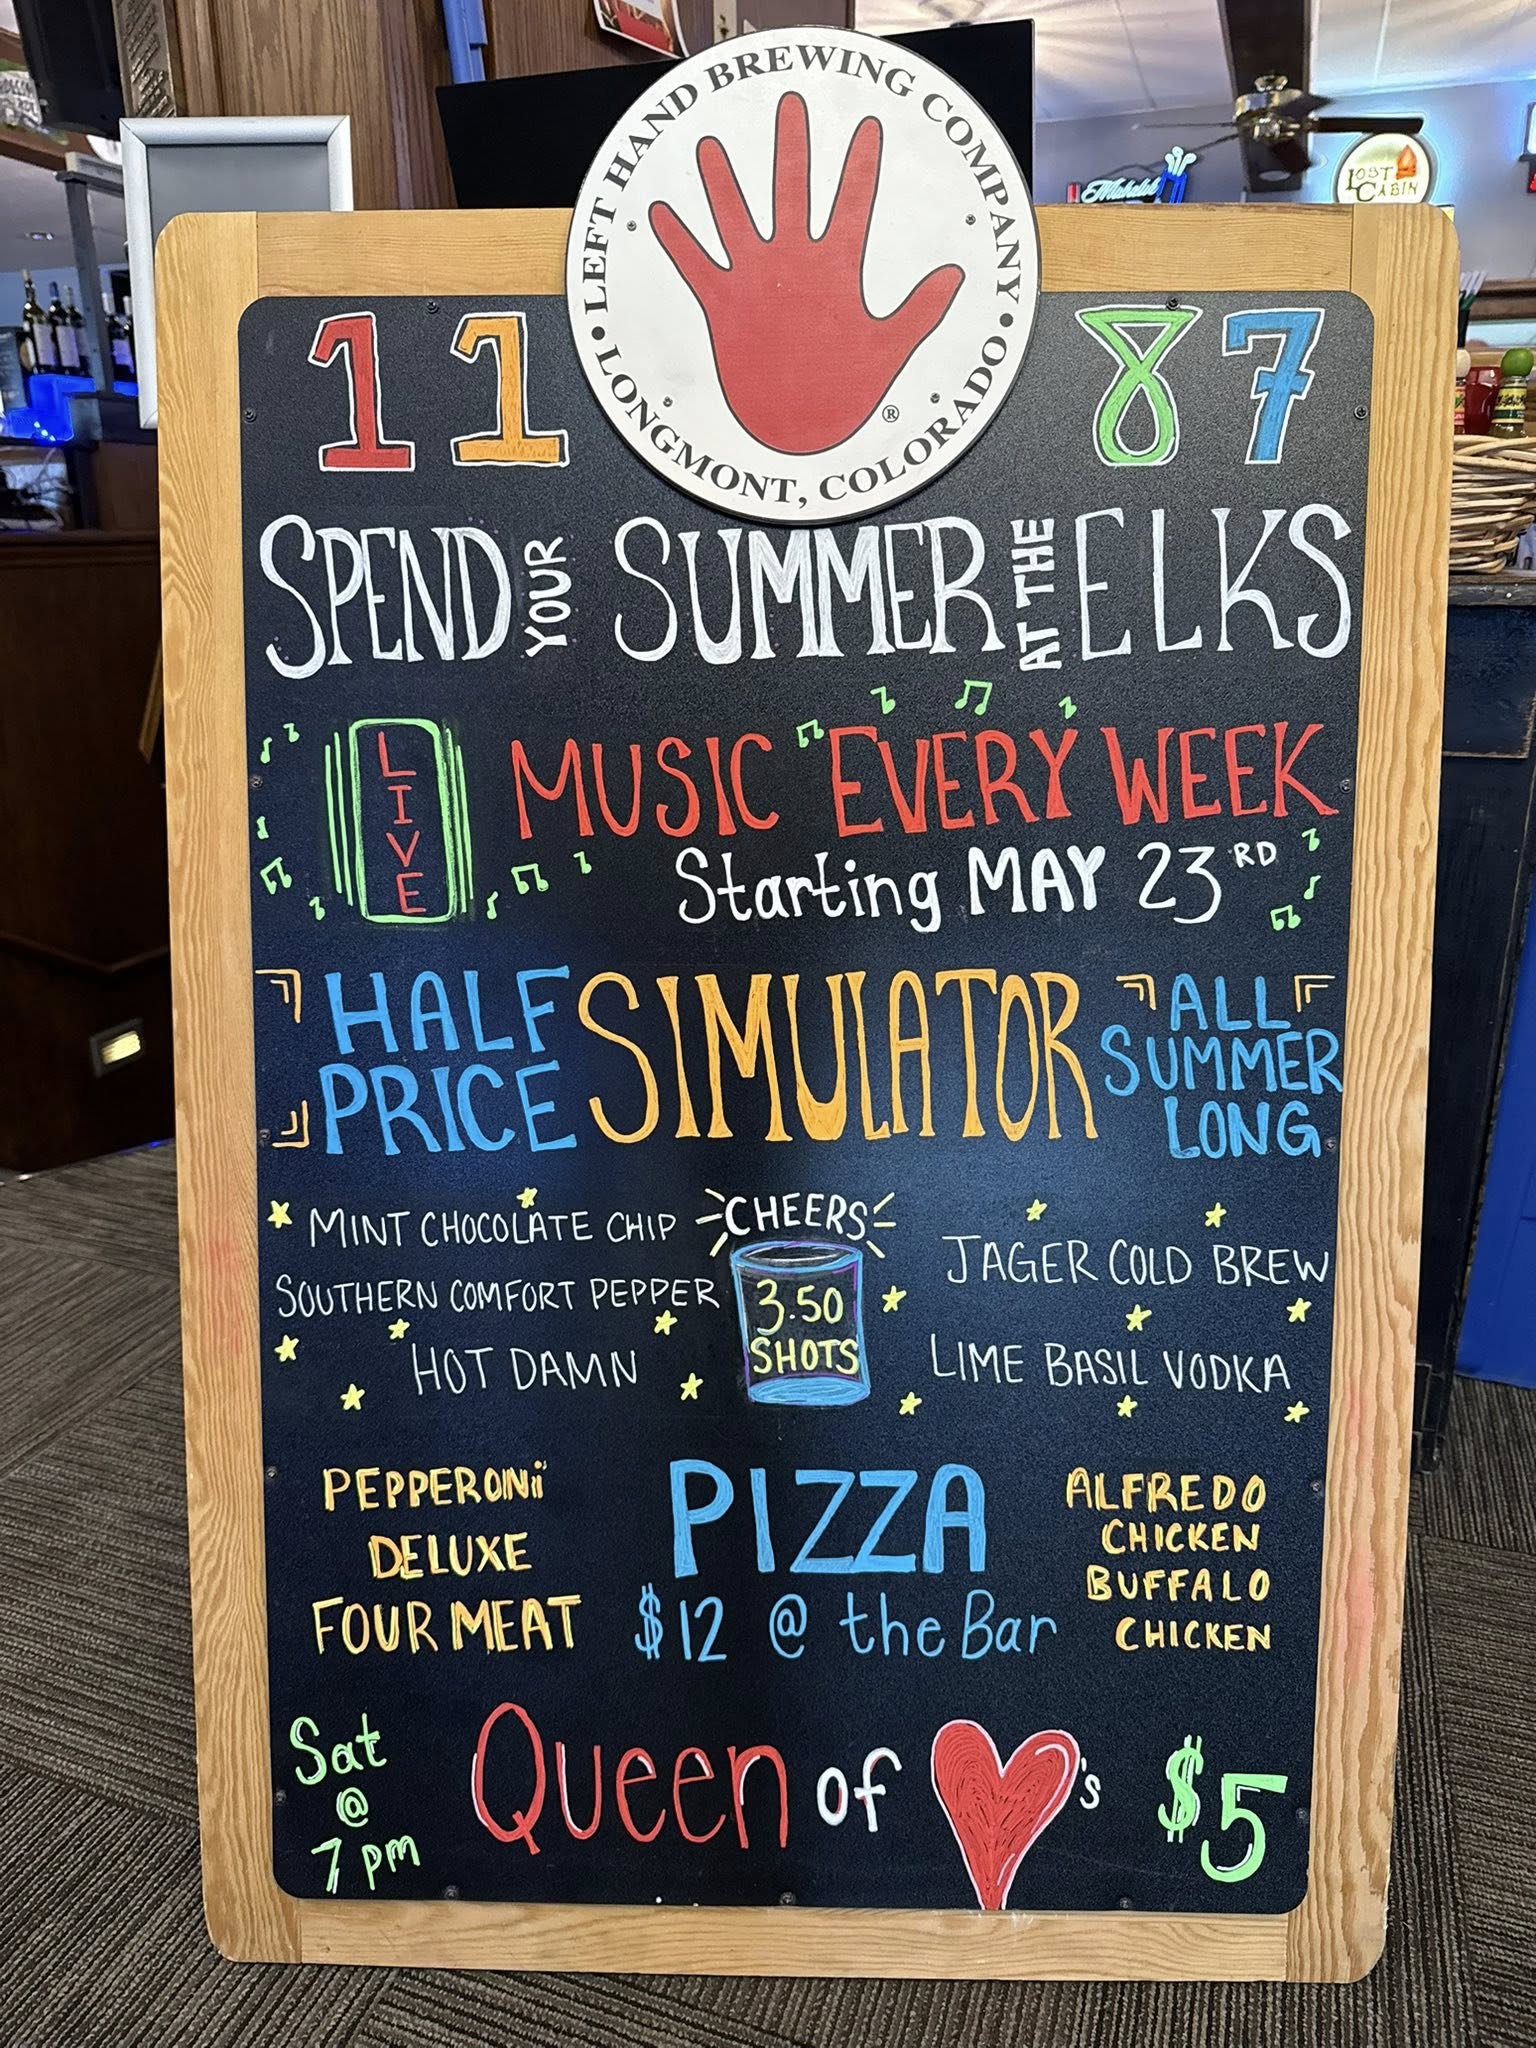 LEFT HAND BREWING COMPANY
• LONGMONT, COLORADO •
®
Michelob
LOST CABIN
11 87
SPEND YOUR SUMMER AT THE ELKS
LIVE
MUSIC EVERY WEEK
Starting MAY 23RD
HALF PRICE
SIMULATOR
ALL SUMMER LONG
MINT CHOCOLATE CHIP
SOUTHERN COMFORT PEPPER
HOT DAMN
CHEERS
3.50
SHOTS
JAGER COLD BREW
LIME BASIL VODKA
PEPPERONii
DELUXE
FOUR MEAT
PIZZA
$12 @ the Bar
ALFREDO
CHICKEN
BUFFALO
CHICKEN
Sat
@
7 pm
Queen of ♥'s
$5